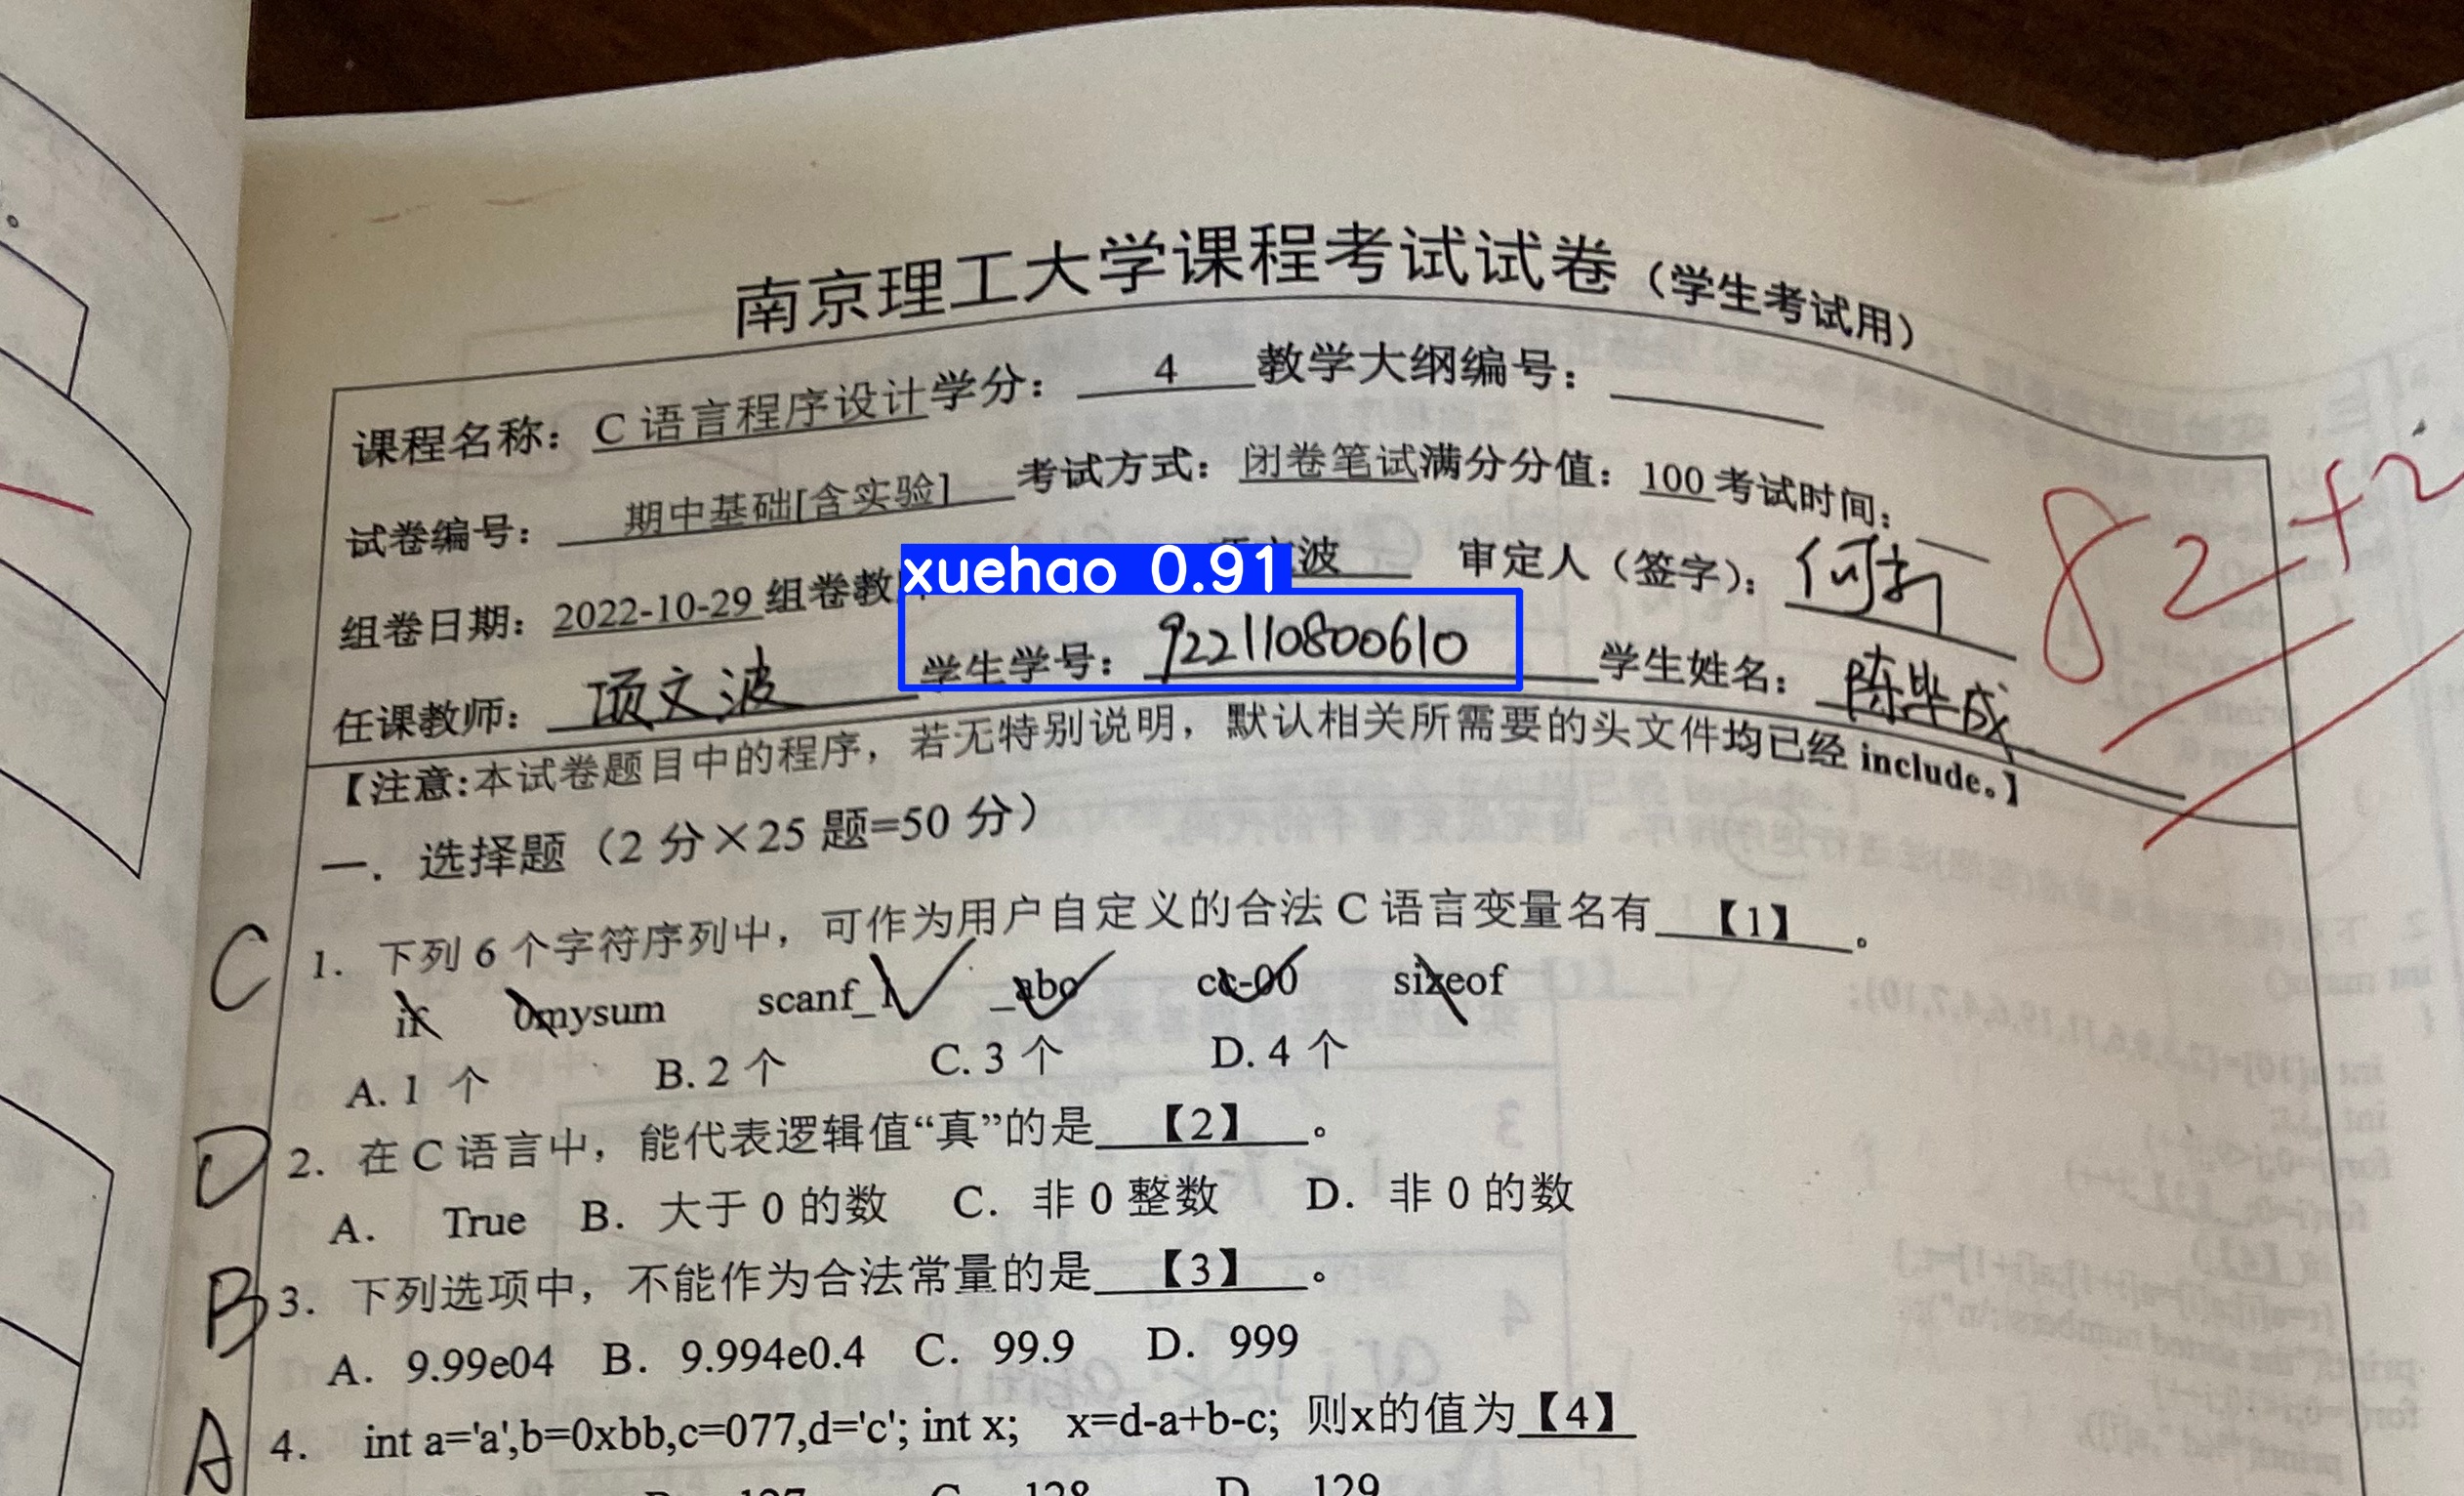 南京理工大学课程考试试卷（学生考试用）
课程名称：C 语言程序设计学分：4教学大纲编号：
试卷编号：期中基础[含实验]考试方式：闭卷笔试满分分值：100考试时间：
82+2
xuehao 0.91
组卷日期：2022-10-29组卷教 波 审定人（签字）：
任课教师：项文波 学生学号：922110800610 学生姓名：陈毕成
【注意:本试卷题目中的程序，若无特别说明，默认相关所需要的头文件均已经 include。】
一．选择题（2 分×25 题=50 分）
C 1. 下列 6 个字符序列中，可作为用户自定义的合法 C 语言变量名有【1】。
if 0mysum scanf_1 _abc cc-00 sizeof
A. 1 个 B. 2 个 C. 3 个 D. 4 个
D 2. 在 C 语言中，能代表逻辑值“真”的是【2】。
A. True B. 大于 0 的数 C. 非 0 整数 D. 非 0 的数
B 3. 下列选项中，不能作为合法常量的是【3】。
A. 9.99e04 B. 9.994e0.4 C. 99.9 D. 999
A 4. int a='a',b=0xbb,c=077,d='c'; int x; x=d-a+b-c; 则x的值为【4】
127 128 D 129